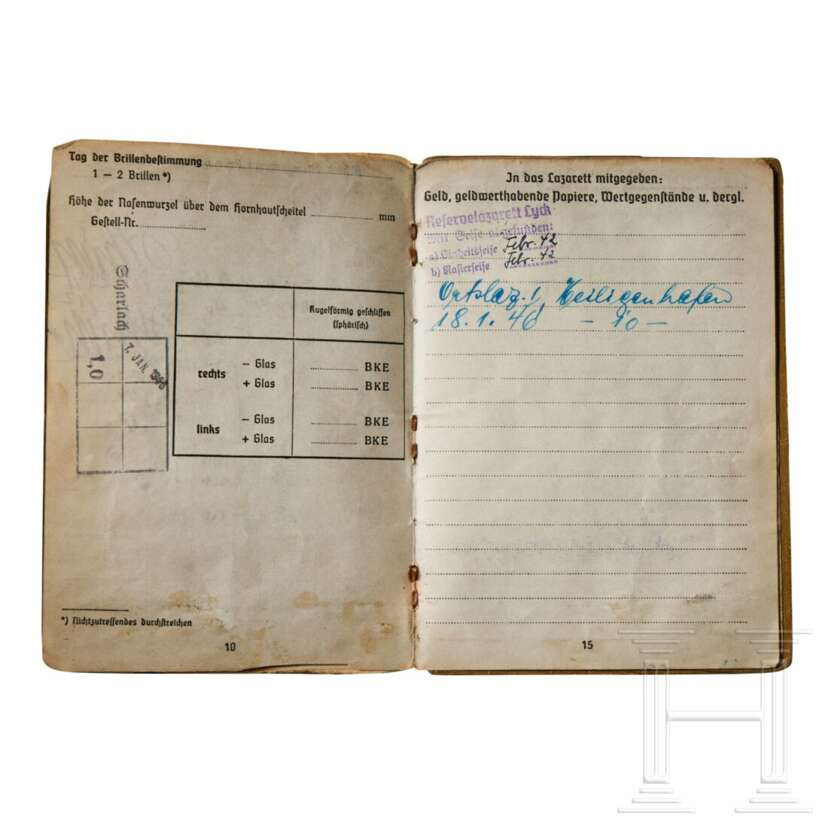 Tag der Brillenbestimmung
1 – 2 Brillen*)
Höhe der Nasenwurzel über dem Hornhautscheitel mm
Gestell-Nr.
Scharlach
7. JAN. 1943
1,0
Kugelförmig geschliffen
(sphärisch)
rechts
– Glas BKE
+ Glas BKE
links
– Glas BKE
+ Glas BKE
*) Nichtzutreffendes durchstreichen
10
In das Lazarett mitgegeben:
Geld, geldwerthabende Papiere, Wertgegenstände u. dergl.
Reservelazarett Lyck
Mit Seife abgefunden:
a) Einheitsseife Febr. 42
b) Rasierseife Febr. 42
Ortslaz. 1, Heiligenhafen
18.1.46 – 10 –
15
H